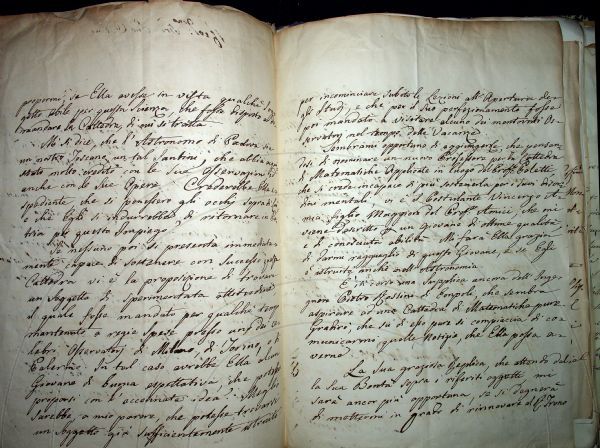 propormi, se Ella avesse in vista qualche Sog-
getto abile per questa Scienza, che fosse disposto a do-
mandare la Cattedra, di cui si tratta.
Mi si dice, che l'Astronomo di Padova sia
un nostro Toscano, un tal Santini, che abbia acqui-
stato molto credito con le sue Osservazioni, ed
anche con le sue Opere. Crederebbe Ella es-
pediente, che si ponessero gli occhj sopra di lui,
e che Egli si indurrebbe di ritornare in Pa-
tria per questo Impiego?
Se nessuno poi si presenta immediata-
mente capace di sostenere con successo questa
Cattedra vi è la proposizione di trovare
un Soggetto di sperimentata abilità
il quale fosse mandato per qualche tempo
mantenuto a regie spese presso uno dei ce-
lebri Osservatorj di Milano, di Torino, o di
Palermo. In tal caso avrebbe Ella alcun
Giovane di buona aspettativa, che potesse
proporsi con l'accennata idea? Meglio
sarebbe a mio parere, che potesse trovarsi
un Soggetto già sufficientemente istruito
per incominciare subito le Lezioni all'Apertura de-
gli Studj, e che per il suo perfezionamento fosse
poi mandato a visitare alcuno dei mentovati Os-
servatorj nel tempo delle Vacanze.
Sembrami opportuno di aggiungerle, che pensan-
dosi di nominare un nuovo Professore per la Cattedra
di Matematiche Applicate in luogo del Proff.
che si crede incapace di più sostenerla per i suoi disor-
dini mentali vi è il Postulante Vincenzo A-
mici figlio Maggiore del Proff. Amici, che mi
viene descritto p. un Giovane di ottime qualità
e di conosciuta abilità. Mi farà Ella grazia
di darmi ragguagli di questo Giovane, e se Egli
è istruito anche nell'Astronomia.
È di fare una Supplica ancora dell'Inge-
gnere Pietro Massini di Empoli, che sembra
aspirare ad una Cattedra di Matematiche pure
Gradirò, che su di esso pure si compiaccia di co-
municarmi quelle Notizie, che Ella possa a-
verne.
La sua graziosa Replica, che attendo dalla
la sua Bontà sopra i riferiti oggetti mi
sarà ancor più opportuna, se si degnerà
di mettermi in grado di rinnovare al